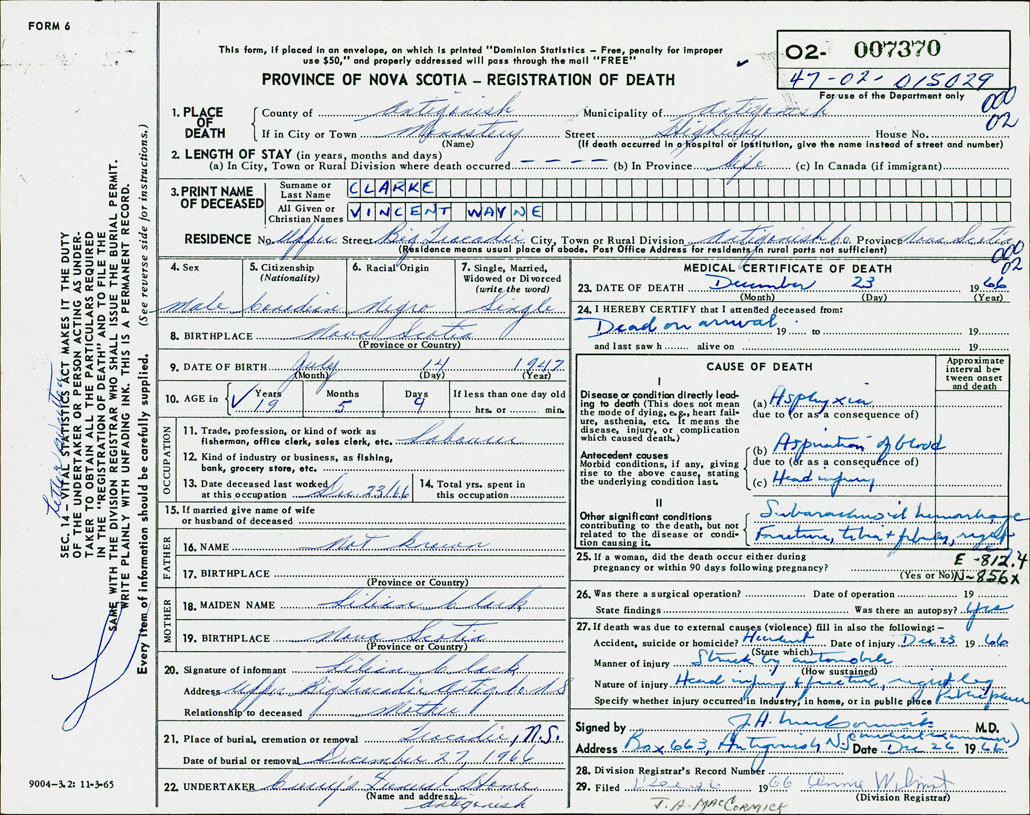 FORM 6
This form, if placed in an envelope, on which is printed "Dominion Statistics – Free, penalty for improper
use $50," and properly addressed will pass through the mail "FREE"
PROVINCE OF NOVA SCOTIA – REGISTRATION OF DEATH
O2- 007370
47-02-015029
For use of the Department only
000
02
1. PLACE OF DEATH
County of Antigonish Municipality of Antigonish
If in City or Town Monastery Street Highway House No.
(Name) (If death occurred in a hospital or institution, give the name instead of street and number)
2. LENGTH OF STAY (in years, months and days)
(a) In City, Town or Rural Division where death occurred – – – – (b) In Province Life (c) In Canada (if immigrant)
3. PRINT NAME OF DECEASED
Surname or Last Name CLARKE
All Given or Christian Names VINCENT WAYNE
RESIDENCE No. Upper Street Big Tracadie City, Town or Rural Division Antigonish Co. Province Nova Scotia
(Residence means usual place of abode. Post Office Address for residents in rural parts not sufficient)
000
02
4. Sex Male
5. Citizenship (Nationality) Canadian
6. Racial Origin Negro
7. Single, Married, Widowed or Divorced (write the word) Single
8. BIRTHPLACE Nova Scotia
(Province or Country)
9. DATE OF BIRTH July 14 1947
(Month) (Day) (Year)
10. AGE in ✓ Years 19 Months 5 Days 9 If less than one day old
hrs. or min.
OCCUPATION
11. Trade, profession, or kind of work as
fisherman, office clerk, sales clerk, etc. Labourer
12. Kind of industry or business, as fishing,
bank, grocery store, etc.
13. Date deceased last worked
at this occupation Dec 23/66
14. Total yrs. spent in
this occupation
15. If married give name of wife
or husband of deceased
FATHER
16. NAME Not known
17. BIRTHPLACE
(Province or Country)
MOTHER
18. MAIDEN NAME Lilian Clark
19. BIRTHPLACE Nova Scotia
(Province or Country)
20. Signature of informant Lilian Clark
Address Upper Big Tracadie Antig. Co N S
Relationship to deceased Mother
21. Place of burial, cremation or removal Tracadie, N.S.
Date of burial or removal December 27, 1966
22. UNDERTAKER Curry's Funeral Home
(Name and address) Antigonish
MEDICAL CERTIFICATE OF DEATH
23. DATE OF DEATH December 23 1966
(Month) (Day) (Year)
24. I HEREBY CERTIFY that I attended deceased from:
Dead on arrival 19 to 19
and last saw h alive on 19
CAUSE OF DEATH
Approximate interval between onset and death
I
Disease or condition directly leading to death (This does not mean
the mode of dying, e.g., heart failure, asthenia, etc. It means the
disease, injury, or complication
which caused death.)
(a) Asphyxia
due to (or as a consequence of)
Antecedent causes
Morbid conditions, if any, giving
rise to the above cause, stating
the underlying condition last.
(b) Aspiration of blood
due to (or as a consequence of)
(c) Head injury
II
Other significant conditions
contributing to the death, but not
related to the disease or condition causing it.
Subarachnoid hemorrhage
Fracture, tibia + fibula, right
25. If a woman, did the death occur either during
pregnancy or within 90 days following pregnancy?
(Yes or No)
E-812.4
N-856X
26. Was there a surgical operation? Date of operation 19
State findings Was there an autopsy? Yes
27. If death was due to external causes (violence) fill in also the following:–
Accident, suicide or homicide? Accident Date of injury Dec 23 1966
(State which)
Manner of injury Struck by automobile
(How sustained)
Nature of injury Head injury + fracture, right leg
Specify whether injury occurred in Industry, in home, or in public place Public place
Signed by J.A. MacCormick M.D.
(Medical Examiner)
Address Box 663, Antigonish N.S. Date Dec 26 1966
28. Division Registrar's Record Number
29. Filed 1966
(Division Registrar)
J. A. MACCORMICK
SEC. 14 – VITAL STATISTICS ACT MAKES IT THE DUTY
OF THE UNDERTAKER OR PERSON ACTING AS UNDER-
TAKER TO OBTAIN ALL THE PARTICULARS REQUIRED
IN THE "REGISTRATION OF DEATH" AND TO FILE THE
SAME WITH THE DIVISION REGISTRAR WHO SHALL ISSUE THE BURIAL PERMIT.
WRITE PLAINLY WITH UNFADING INK. THIS IS A PERMANENT RECORD.
Every item of information should be carefully supplied. (See reverse side for instructions.)
9004–3.2: 11-3-65